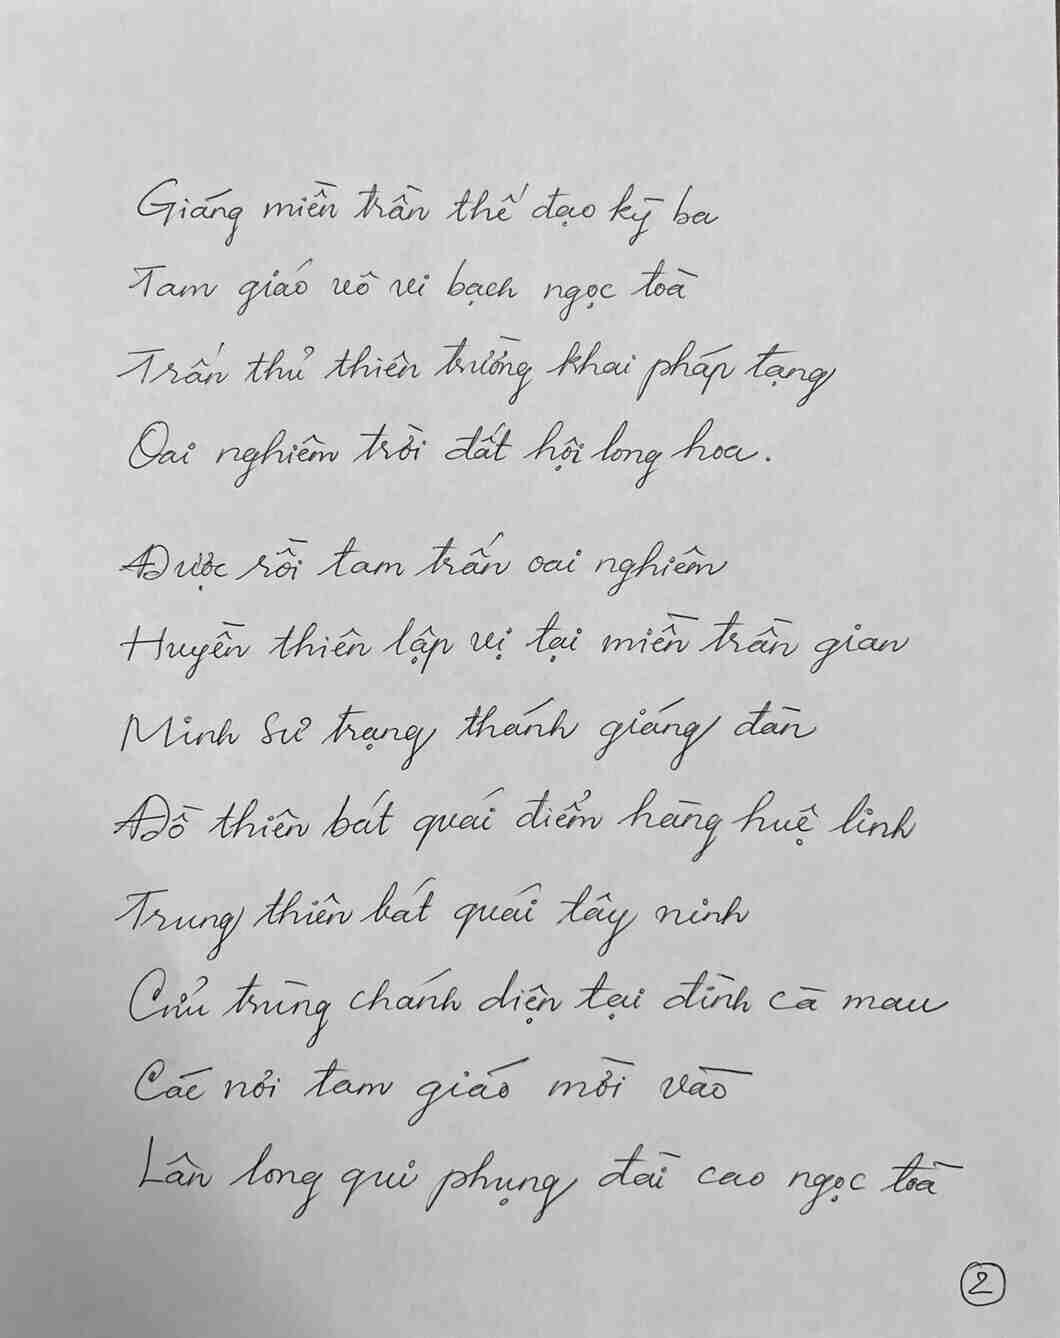 Giáng miền trần thế đạo kỳ ba
Tam giáo vô vi bạch ngọc toà
Trấn thủ thiên trường khai pháp tạng
Oai nghiêm trời đất hội long hoa.
Được rồi tam trấn oai nghiêm
Huyền thiên lập vị tại miền trần gian
Minh sư trạng thánh giáng đàn
Đồ thiên bát quái điểm hàng huệ linh
Trung thiên bát quái tây ninh
Cửu trùng chánh diện tại đình cà mau
Các nơi tam giáo mời vào
Lân long qui phụng đài cao ngọc toà
2